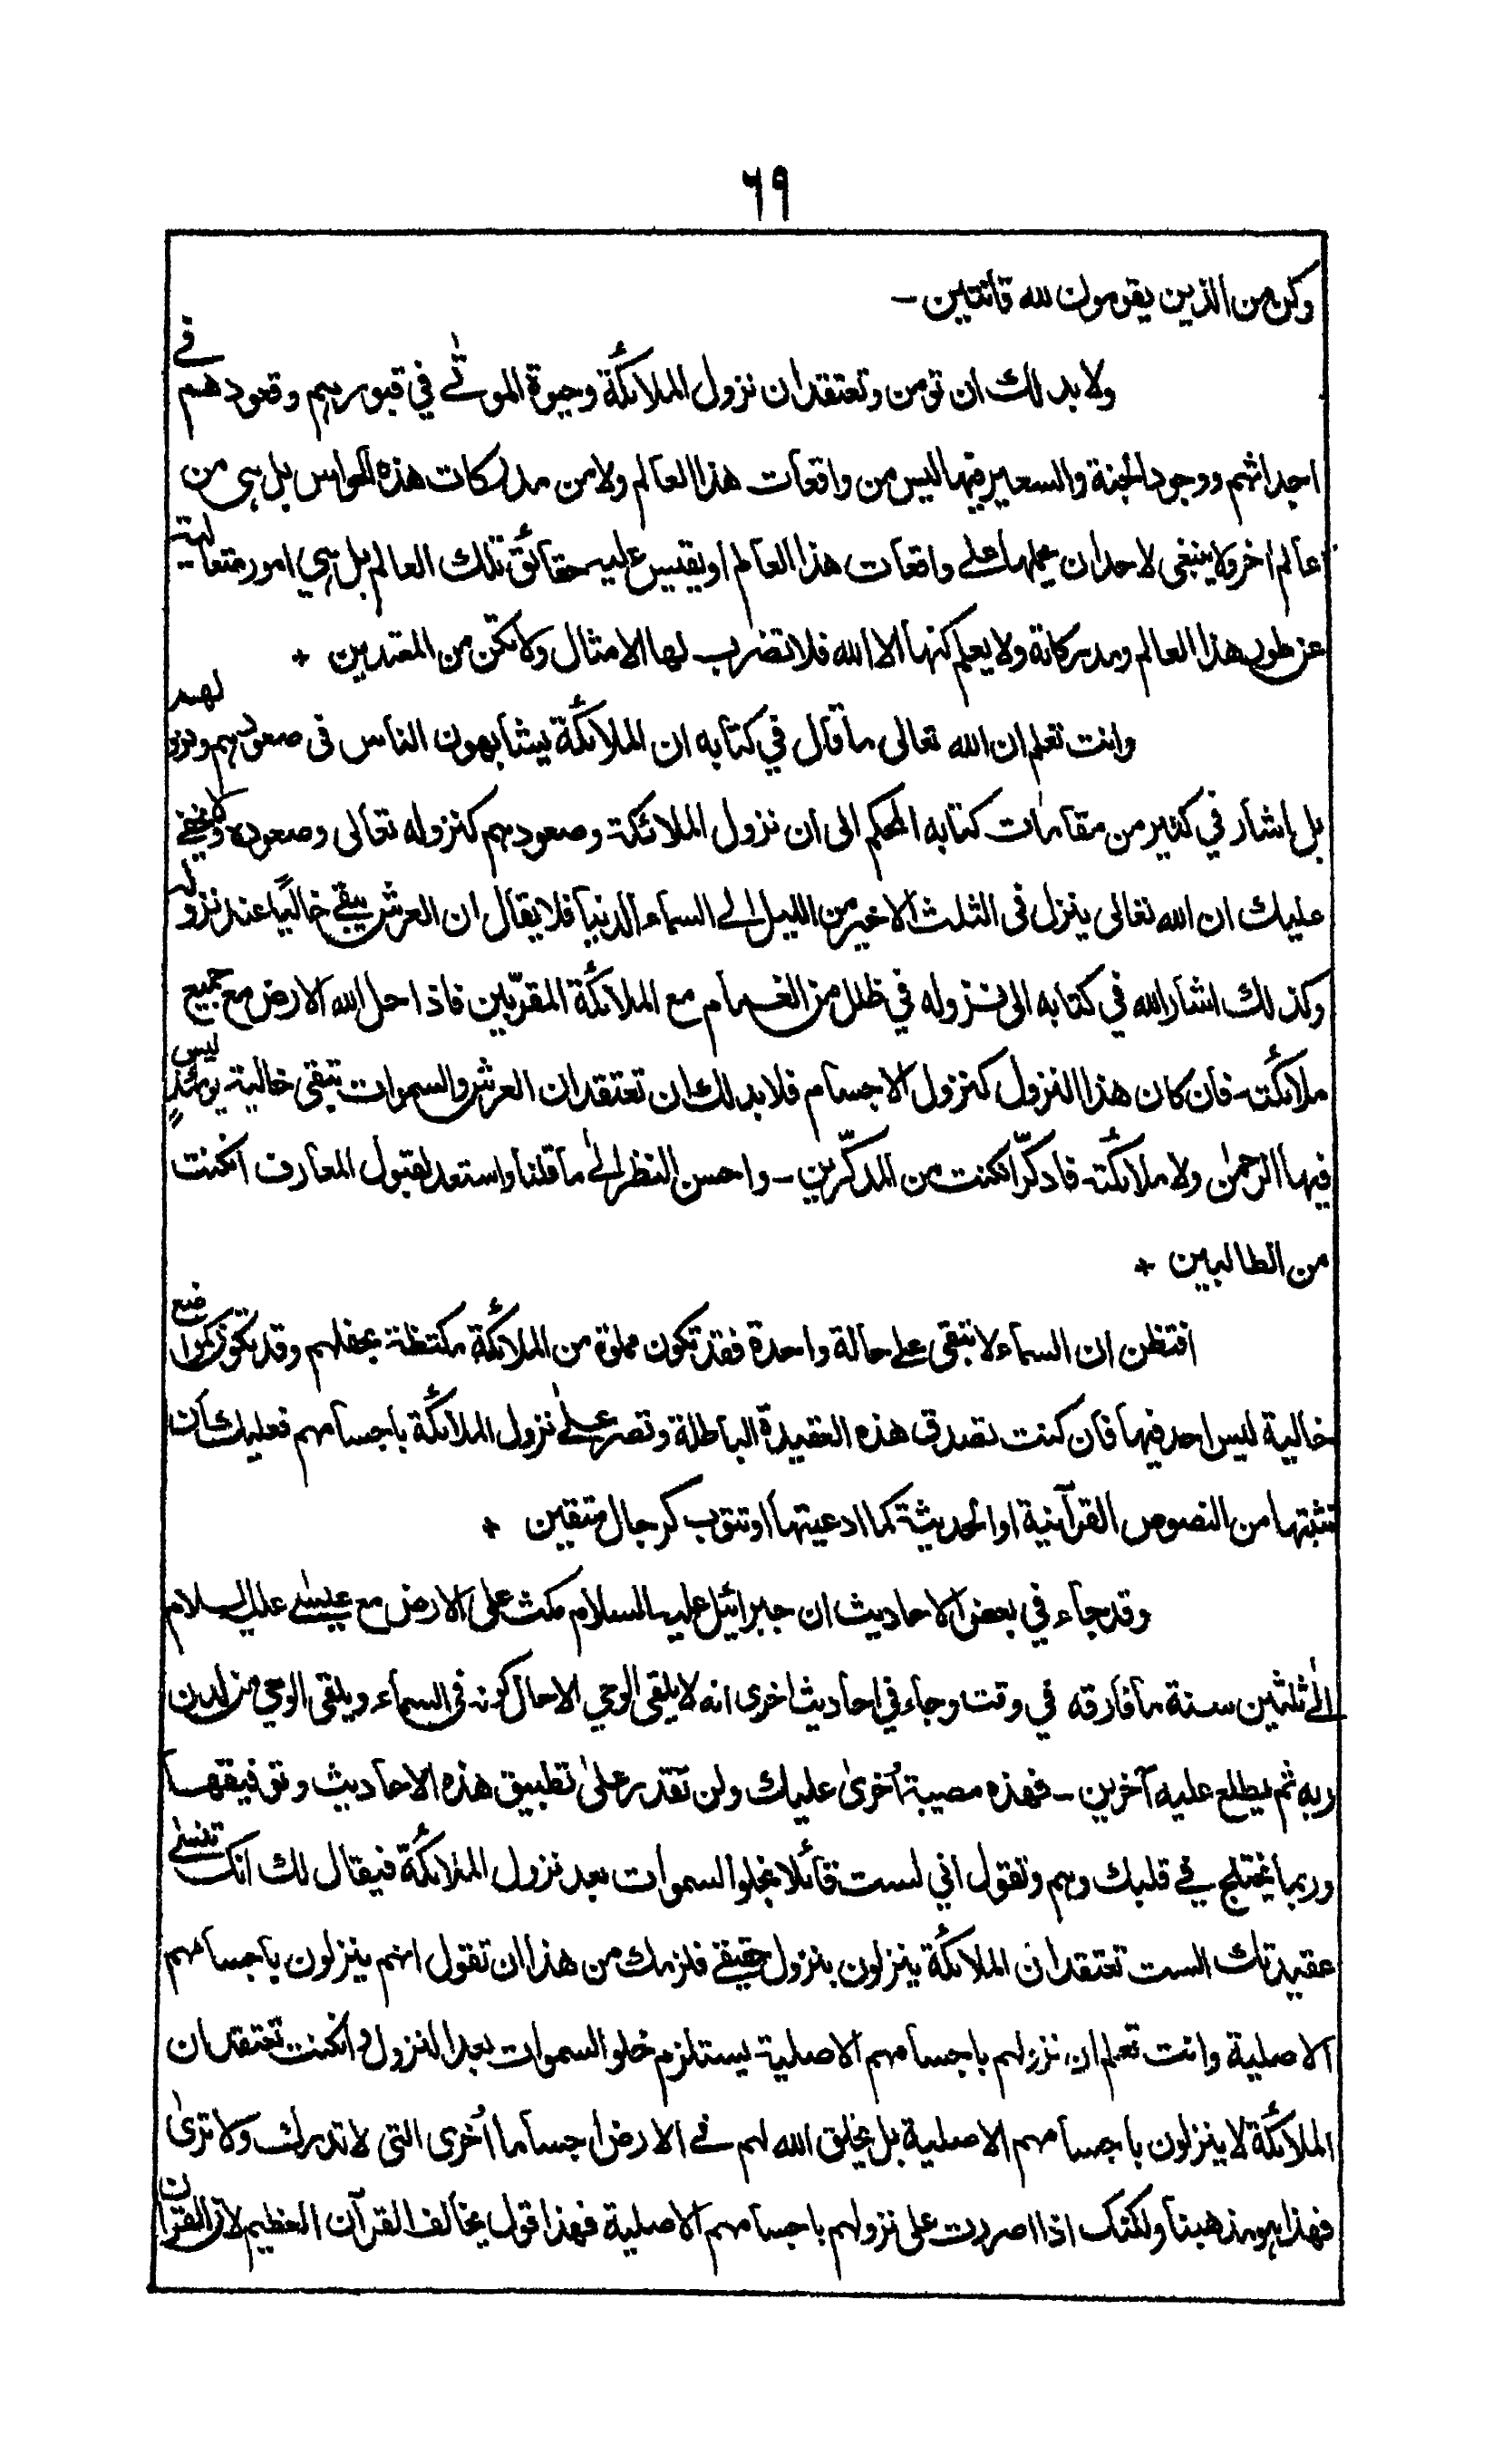 ٦٩
وكن من الذين يقومون لله قانتين -
ولا بد لك ان تؤمن وتعتقد ان نزول الملائكة وحيوة الموتٰى في قبورهم وقعودهم في
اجداثهم ووجود الجنة والسعير فيها ليس من واقعات هذا العالم ولا من مدركات هذه الحواس بل هي من
عالم اخر ولا ينبغى لاحد ان يحملها على واقعات هذا العالم او يقيس عليه حقائق تلك العالم بل هي امور متعالية
عن طور هذا العالم ومدركاته ولا يعلم كنهها الا الله فلا تضرب لها الامثال ولا تكن من المعتدين +
وانت تعلم ان الله تعالى ما قال في كتابه ان الملائكة يشابهون الناس فى صعودهم ونزولهم
بل اشار في كثير من مقامات كتابه المحكم الى ان نزول الملائكة وصعودهم كنزوله تعالى وصعوده ولا يخفى
عليك ان الله تعالى ينزل فى الثلث الاخير من الليل الى السماء الدنيا فلا يقال ان العرش يبقى خاليًا عند نزوله
وكذلك اشار الله في كتابه الى نزوله في ظلل من الغمام مع الملائكة المقرّبين فاذا حل الله الارض مع جميع
ملائكته فان كان هذا النزول كنزول الاجسام فلا بد لك ان تعتقد ان العرش والسموات تبقى خالية يومئذٍ ليس
فيها الرحمٰن ولا ملائكته فادكّر انكنت من المدكّرين - واحسن النظر الىٰ ما قلنا واستعد لقبول المعارف انكنت
من الطالبين +
افتظن ان السماء لا تبقى على حالة واحدة فقد تكون مملوّة من الملائكة مكتظة بحفلهم وقد تكون كواضع
خالية ليس احد فيها فان كنت تصدق هذه العقيدة الباطلة وتصر علىٰ نزول الملائكة باجسامهم فعليك ان
تثبتها من النصوص القرآنية او الحديثية كما ادعيتها او تتوب كرجال متقين +
وقد جاء في بعض الاحاديث ان جبرائيل عليه السلام مكث على الارض مع عيسٰى عليه السلام
الىٰ ثلثين سنة ما فارقه في وقت وجاء في احاديث اخرى انه لا يلقى الوحي الا حال كونه فى السماء ويلقى الوحي من لدن
ربه ثم يطلع عليه آخرين - فهذه مصيبة اُخرىٰ عليك ولن تقدر علىٰ تطبيق هذه الاحاديث وتوفيقها
وربما يختلج في قلبك وهم وتقول اني لست قائلا بخلو السموات بعد نزول الملائكة فيقال لك انك تنسٰى
عقيدتك الست تعتقد ان الملائكة ينزلون بنزول حقيقي فلزمك من هذا ان تقول انهم ينزلون باجسامهم
الاصلية وانت تعلم ان نزولهم باجسامهم الاصلية يستلزم خلو السموات بعد النزول وانكنت تعتقد ان
الملائكة لا ينزلون باجسامهم الاصلية بل يخلق الله لهم فے الارض اجساما اُخرى التي لا تدرك ولا ترىٰ
فهذا هو مذهبنا ولكنك اذا اصررت على نزولهم باجسامهم الاصلية فهذا قول يخالف القرآن العظيم لان القرآن